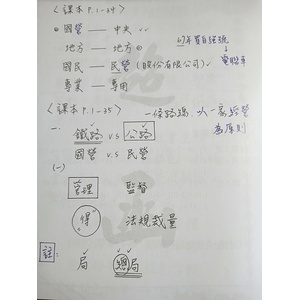 〈課本P.1-34〉
國營 — 中央
地方 — 地方
國民 — 民營(股份有限公司)
專業 — 專用
電聯車
〈課本P.1-35〉
一條路線,以一家經營
為原則
一、鐵路 v.s 公路
國營 v.s 民營
(一)
管理 監督
得 法規裁量
註: 局 總局